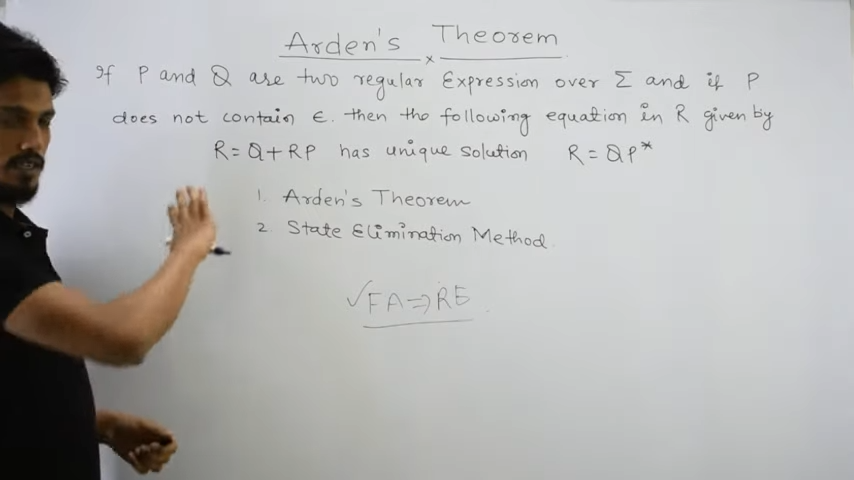 Arden's Theorem
If P and Q are two regular Expression over Σ and if P
does not contain ϵ. then the following equation in R given by
R = Q + RP has unique solution R = QP*
1. Arden's Theorem
2 State Elimination Method.
✓FA ⇒ RE